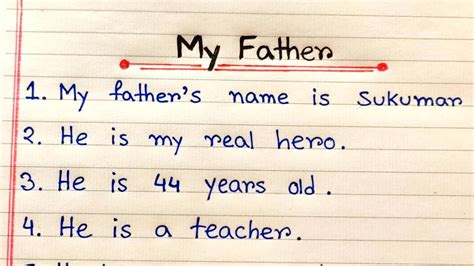 My Father
1. My father's name is Sukumar
2. He is my real hero.
3. He is 44 years old.
4. He is a teacher.